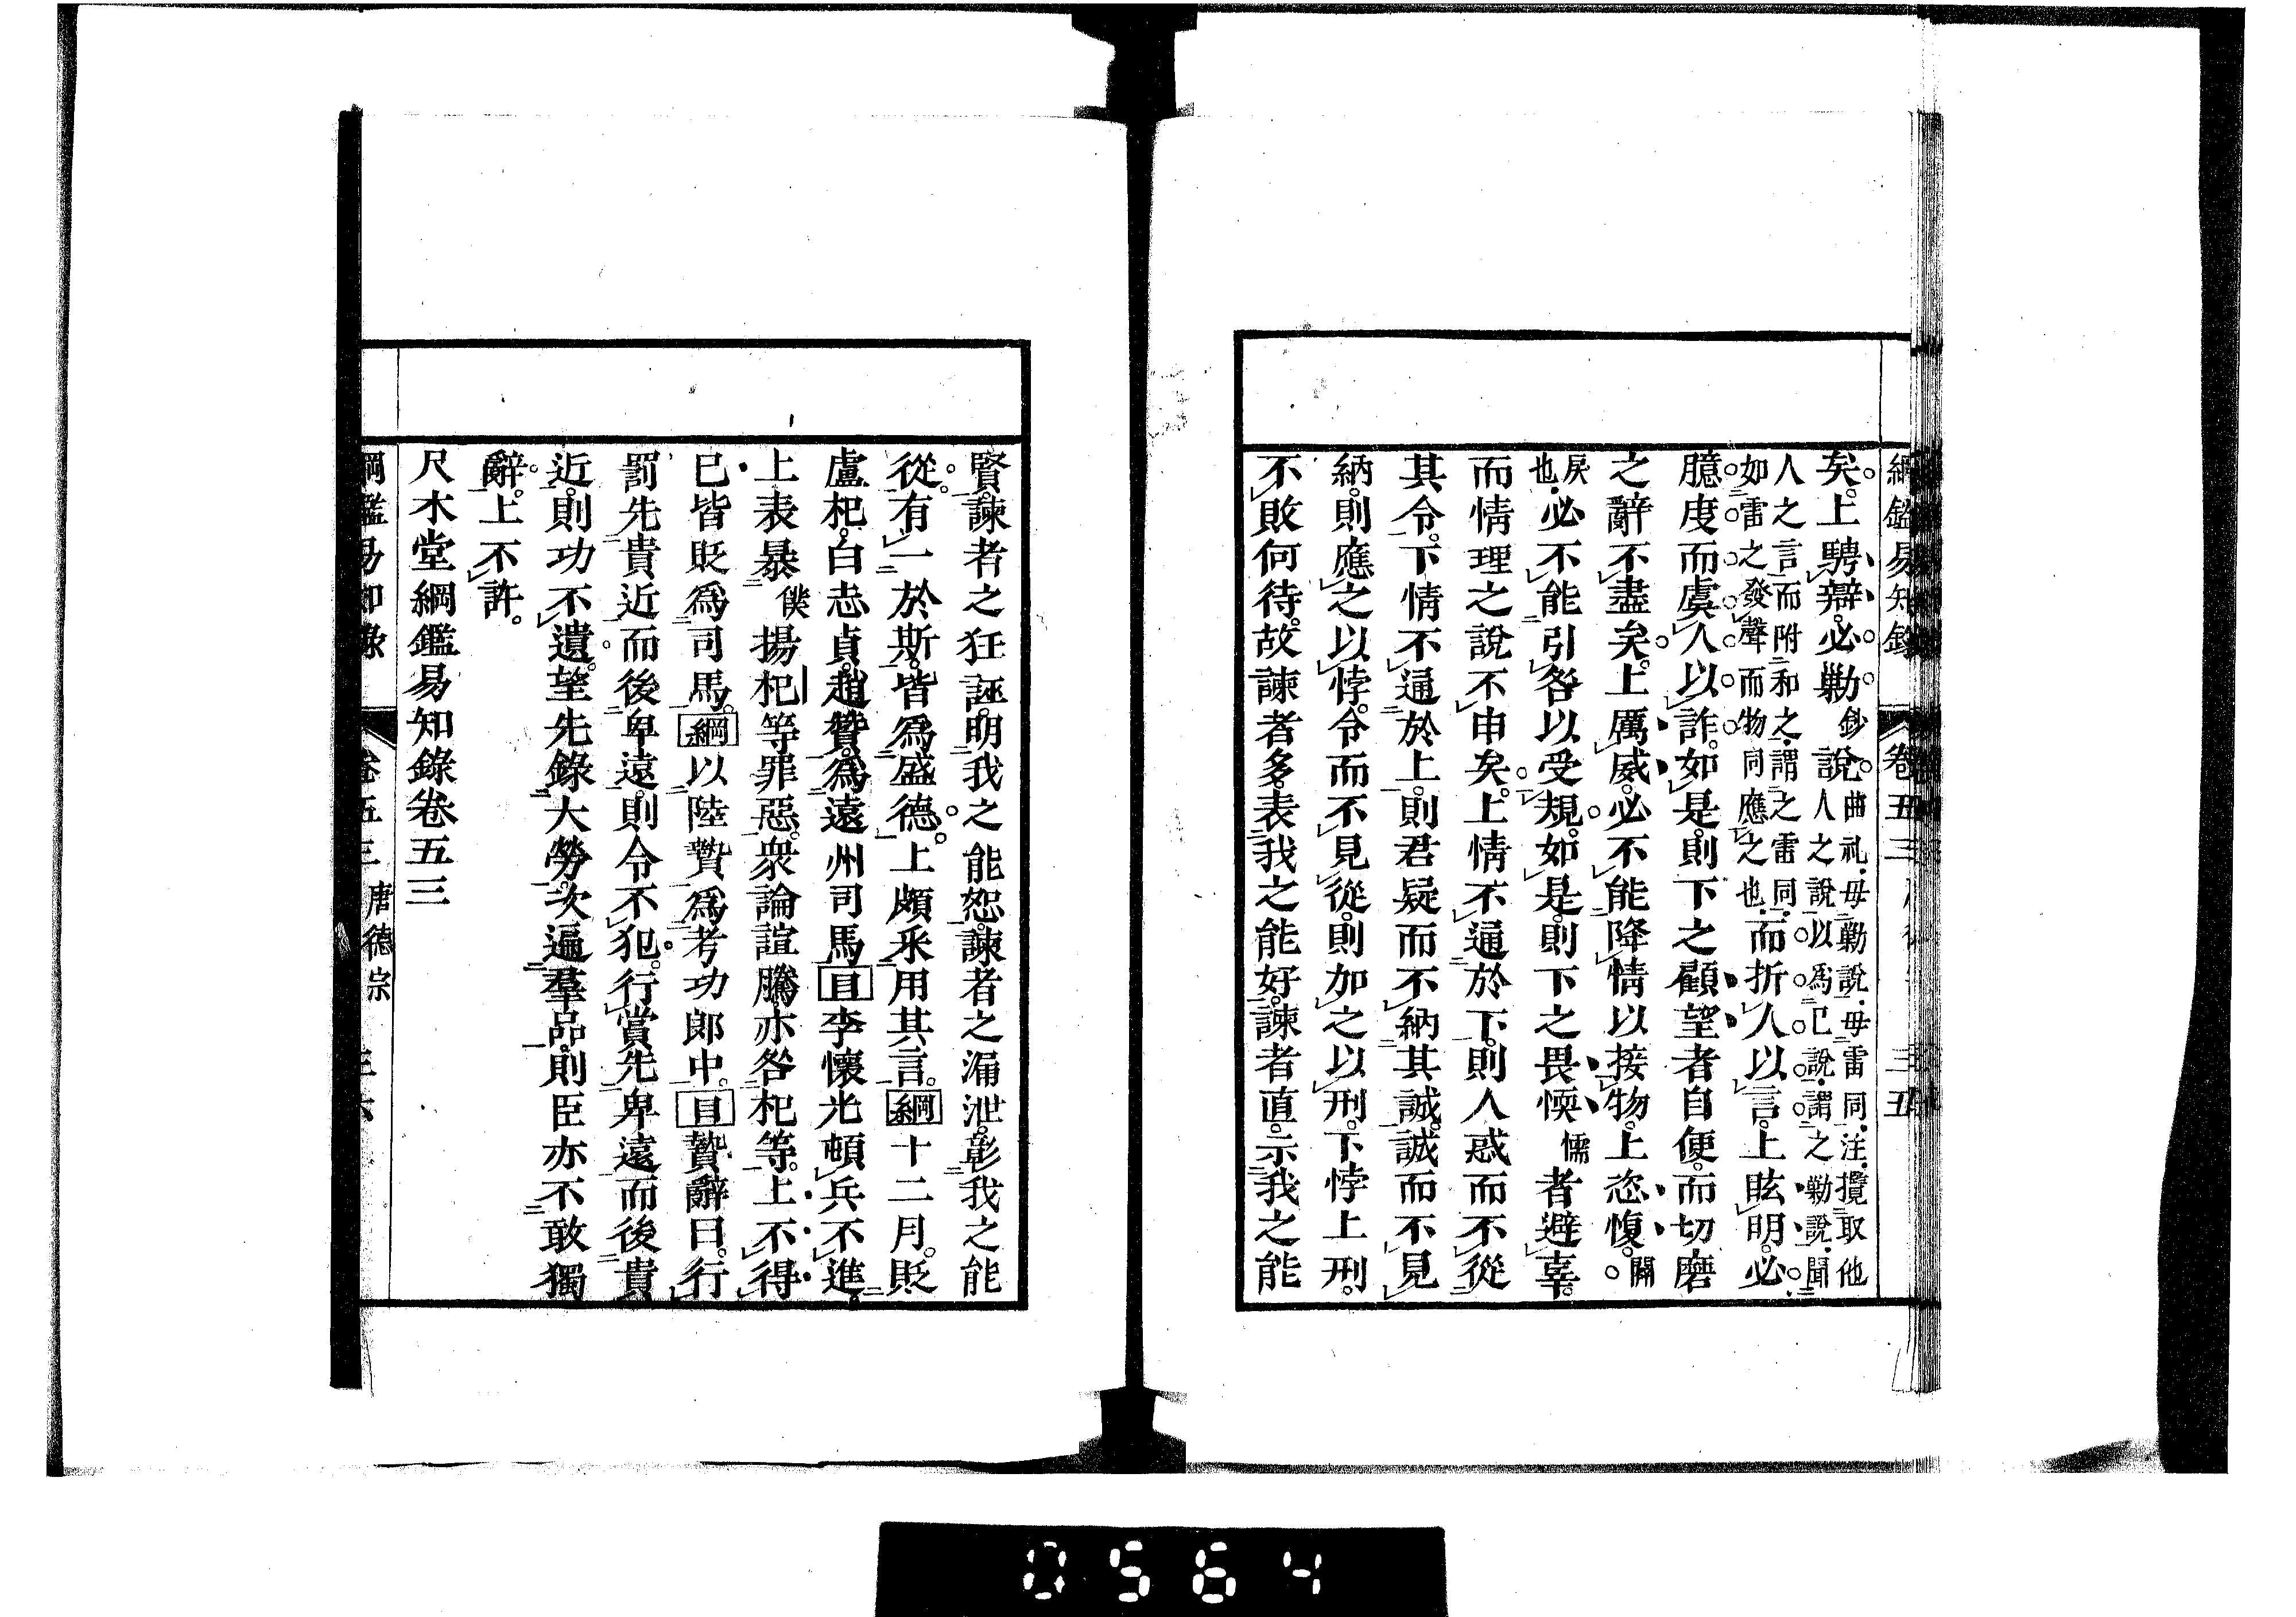 綱鑑易知錄 卷五三 三五
矣。上騁辯。必勦鈔說。曲礼。毋勦說。毋雷同。注。攬取他
說人之說以爲己說。謂之勦說。聞
人之言而附和之。謂之雷同。
如雷之發聲而物同應之也。而折人以言。上眩明。必
臆度而虞人以詐。如是。則下之顧望者自便。而切磨
之辭不盡矣。上厲威。必不能降情以接物。上恣愎。關
戾也。必不能引咎以受規。如是。則下之畏愞懦者避辜。
而情理之說不申矣。上情不通於下。則人惑而不從
其令。下情不通於上。則君疑而不納其誠。誠而不見
納。則應之以悖。令而不見從。則加之以刑。下悖上刑。
不敗何待。故諫者多。表我之能好。諫者直。示我之能
賢。諫者之狂誣。明我之能恕。諫者之漏泄。彰我之能
從。有一於斯。皆爲盛德。上頗采用其言。綱十二月。貶
盧杞。白志貞。趙贊。爲遠州司馬目李懷光頓兵不進。
上表暴僕揚杞等罪惡。衆論諠騰。亦咎杞等。上不得
已皆貶爲司馬。綱以陸贄爲考功郎中。目贄辭曰。行
罰先貴近而後卑遠。則令不犯。行賞先卑遠而後貴
近。則功不遺。望先錄大勞。次遍羣品。則臣亦不敢獨
辭。上不許。
尺木堂綱鑑易知錄卷五三
綱鑑易知錄 卷五三 唐德宗 三六
0564